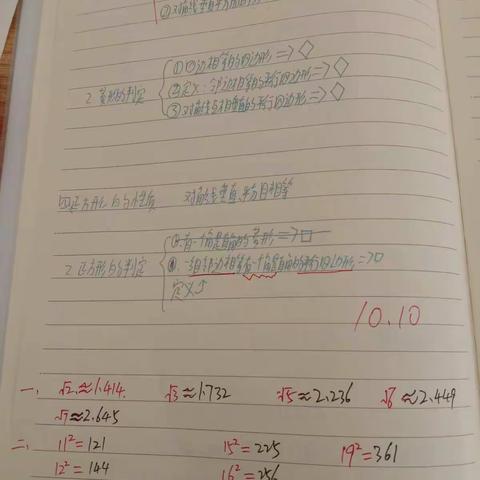 ②对角线垂直平分的
①四边相等的四边形=>◇
2.菱形的判定
②定义:一邻边相等的平行四边形=>◇
③对角线互相垂直的平行四边形=>◇
四.正方形的性质 对角线垂直平分且相等
①有一个角是直角的菱形=>□
2.正方形的判定
②一组邻边相等有一个角是直角的平行四边形=>□
定义↑
10.10
一、√2≈1.414. √3≈1.732 √5≈2.236 √6≈2.449
√7≈2.645
二、11²=121 15²=225 19²=361
12²=144 16²=256